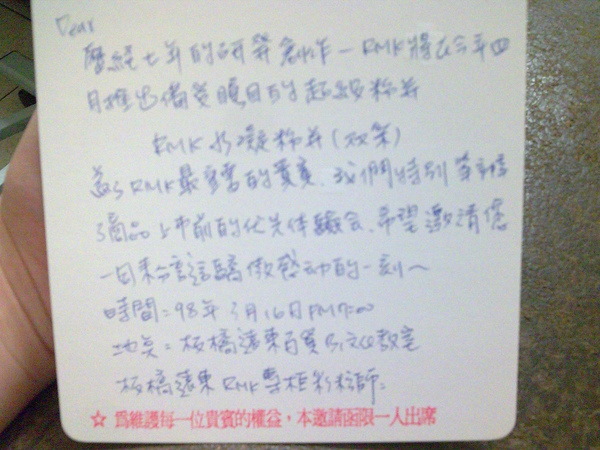 Dear
歷經七年的研發創作－RMK將在今年四
月推出備受矚目的超級粉底
RMK水凝粉底(
為了RMK最重要的貴賓、我們特別
商品上市前的優先体驗會、希望邀請您
一同來 這驕傲發功的一刻~
時間=98年3月16日PM7:00
地点=板橋遠東百貨 文化教室
板橋遠東RMK專柜彩粧師=
☆ 為維護每一位貴賓的權益，本邀請函限一人出席